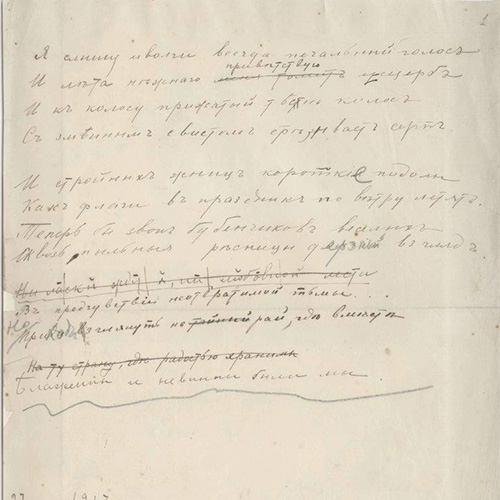 1
Я слышу иволги всегда печальный голосъ
привѣтствую
И лѣта пышнаго ущербъ
И къ колосу прижатый тѣсно колосъ
Съ змѣинымъ свистомъ срѣзываетъ серпъ.
И стройныхъ жницъ короткіе подолы
Какъ флаги въ праздникъ по вѣтру летятъ.
Теперь бы звонъ бубенчиковъ веселыхъ
Сквозь пыльныя рѣсницы взглядъ.
любовной лести
Въ предчувствіи неотвратимой тьмы...
Но взглянуть на рай, гдѣ вмѣстѣ
На ту страну, гдѣ радостью хранимы
Блаженны и невинны были мы.